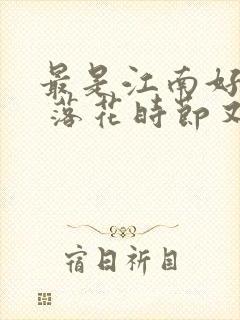 最是江南好
落花时节又
宿日祈目